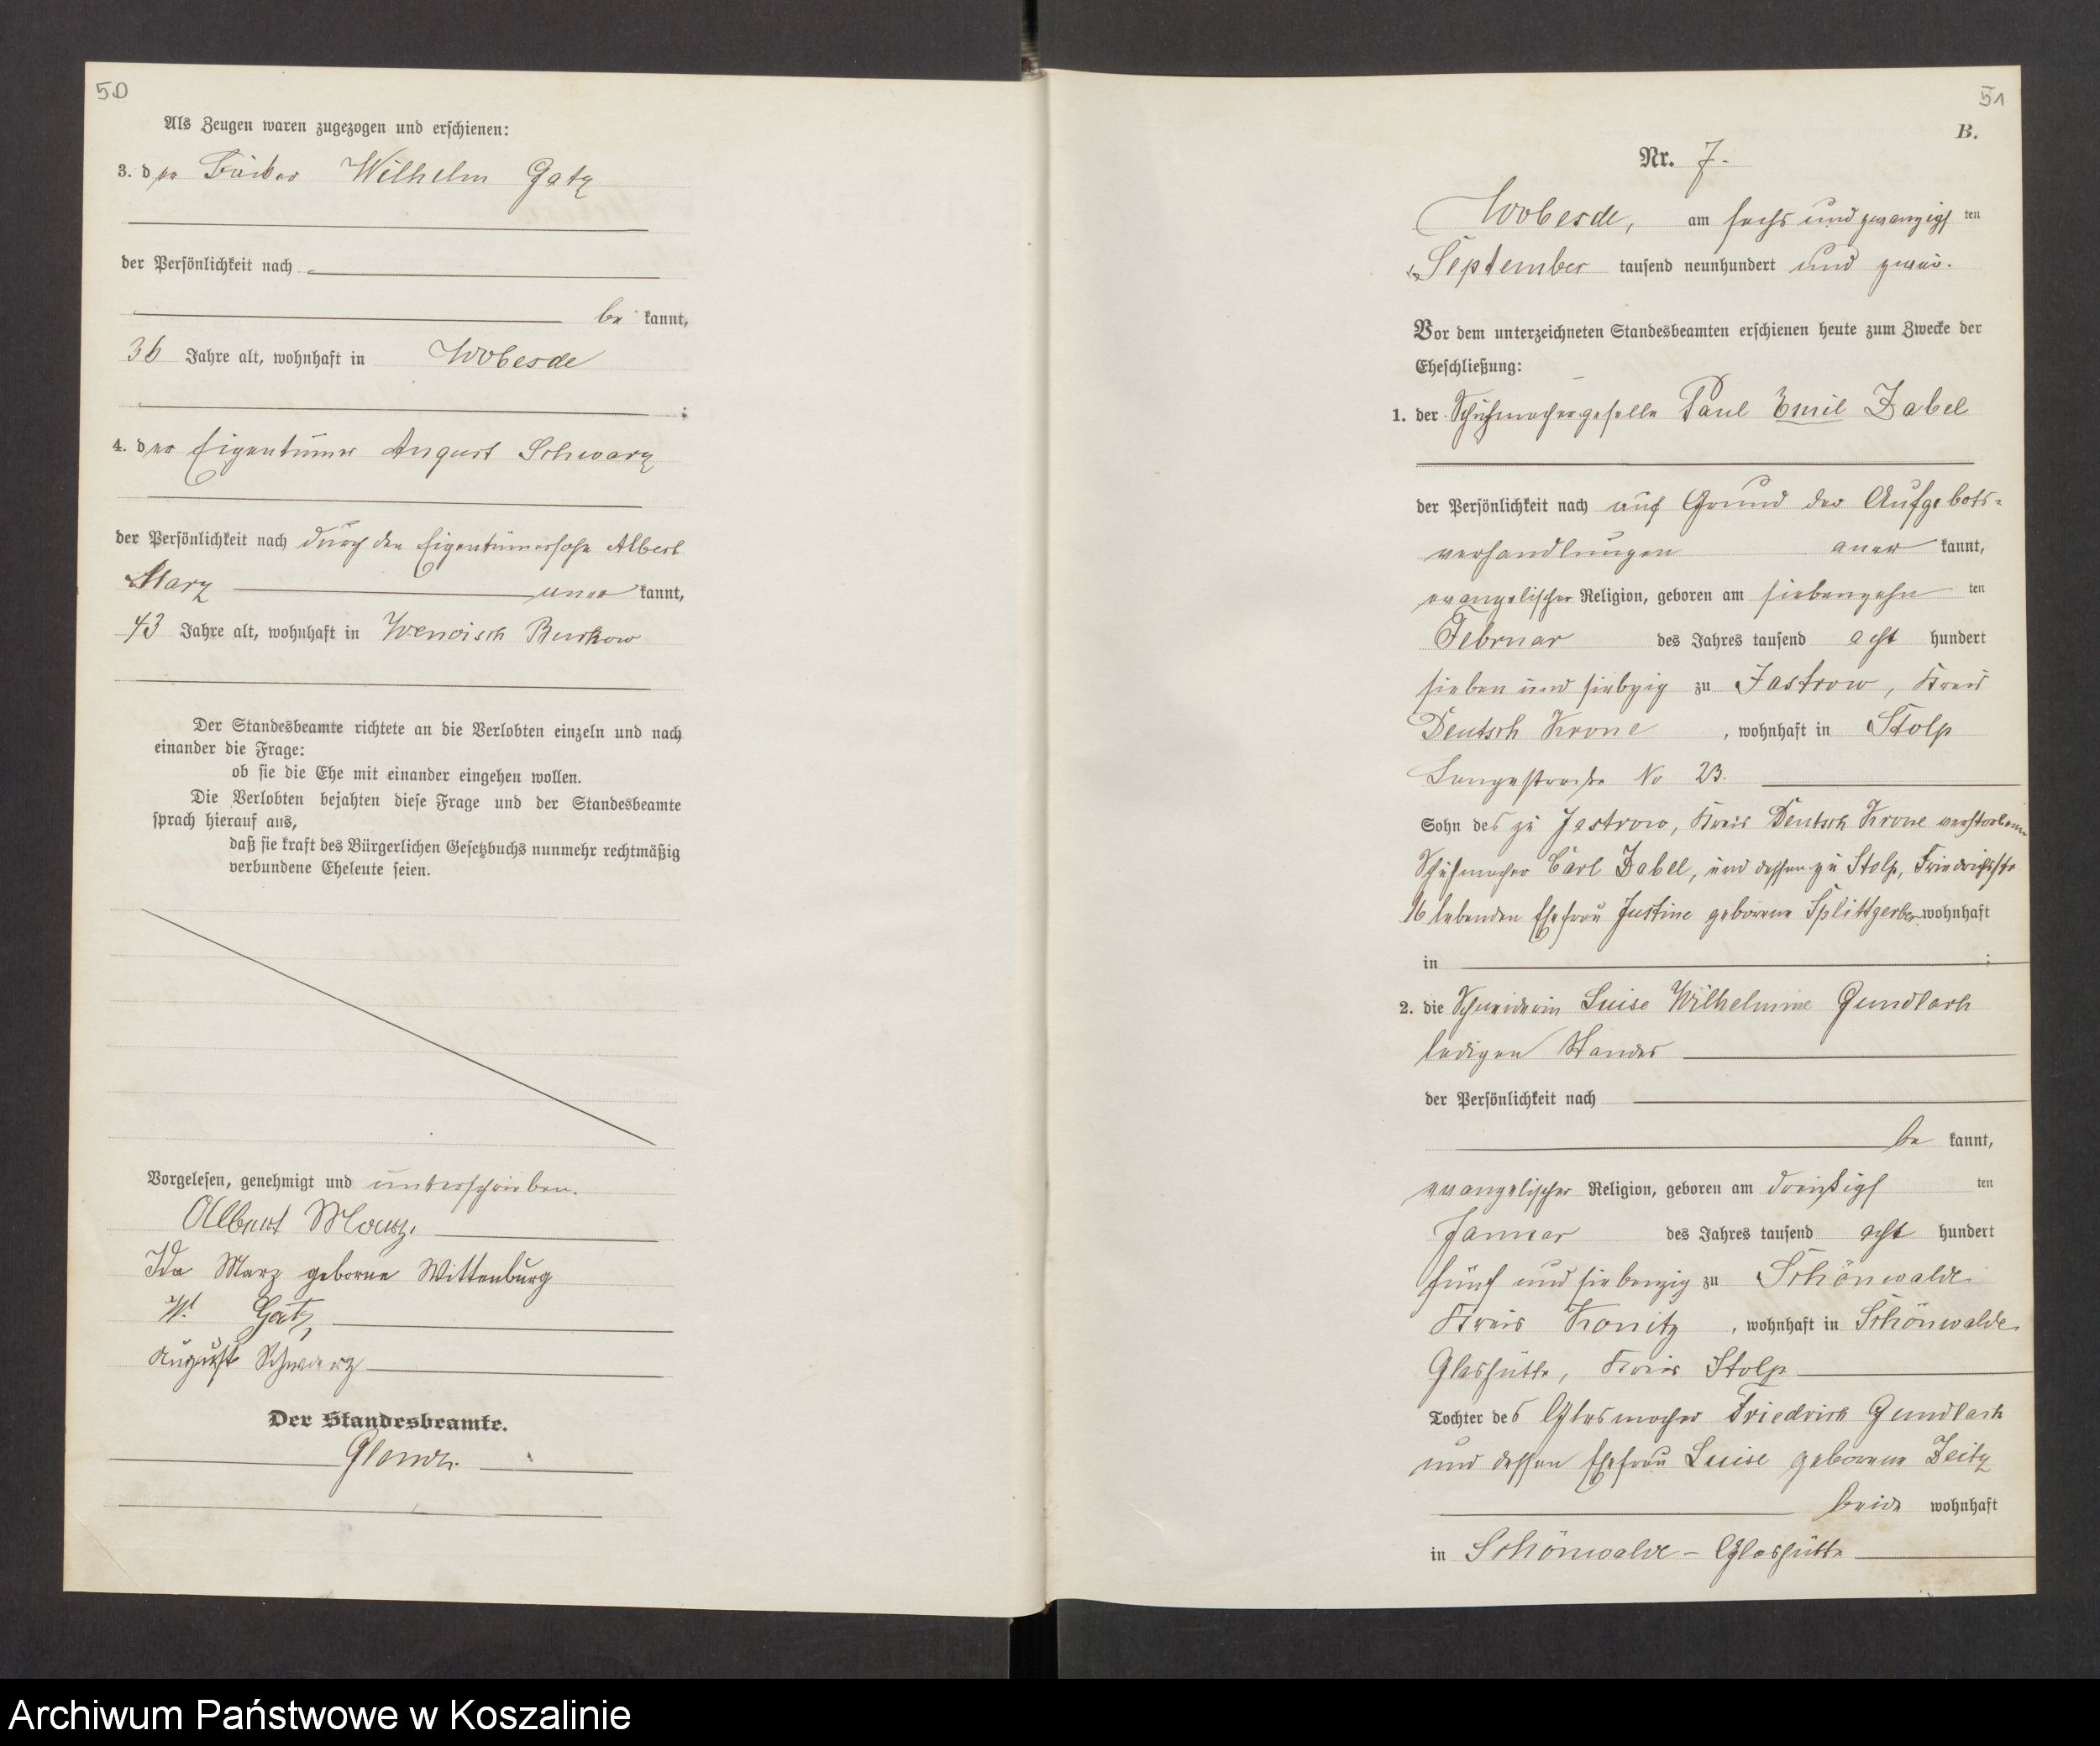 50
Als Zeugen waren zugezogen und erschienen:
3. der Bäcker Wilhelm Gatz
der Persönlichkeit nach
be kannt,
36 Jahre alt, wohnhaft in Wobesde
;
4. der Eigentümer August Schwarz
der Persönlichkeit nach durch den Eigentümersohn Albert
Marz aner kannt,
43 Jahre alt, wohnhaft in Wendisch Buckow
Der Standesbeamte richtete an die Verlobten einzeln und nach
einander die Frage:
ob sie die Ehe mit einander eingehen wollen.
Die Verlobten bejahten diese Frage und der Standesbeamte
sprach hierauf aus,
daß sie kraft des Bürgerlichen Gesetzbuchs nunmehr rechtmäßig
verbundene Eheleute seien.
Vorgelesen, genehmigt und unterschrieben.
Albert Marz.
Ida Marz geborne Wittenburg
W. Gatz
August Schwarz
Der Standesbeamte.
51
B.
Nr. 7.
Wobesde, am sechs und zwanzigs ten
September tausend neunhundert und zwei.
Vor dem unterzeichneten Standesbeamten erschienen heute zum Zwecke der
Eheschließung:
1. der Schuhmachergeselle Paul Emil Zabel
der Persönlichkeit nach auf Grund der Aufgebots=
verhandlungen aner kannt,
evangelischer Religion, geboren am siebenzehn ten
Februar des Jahres tausend acht hundert
sieben und siebzig zu Jastrow, Kreis
Deutsch Krone, wohnhaft in Stolp
Langestraße No 23.
Sohn des zu Jastrow, Kreis Deutsch Krone verstorbenen
Schuhmacher Carl Zabel, und dessen zu Stolp, Friedrichstr
16 lebenden Ehefrau Justine geborene Splittgerber wohnhaft
in ;
2. die Schneiderin Luise Wilhelmine Gundlach
ledigen Standes
der Persönlichkeit nach
be kannt,
evangelischer Religion, geboren am dreißigs ten
Januar des Jahres tausend acht hundert
fünf und siebenzig zu Schönwalde
Kreis Konitz, wohnhaft in Schönwalde
Glashütte, Kreis Stolp
Tochter des Glasmacher Friedrich Gundlach
und dessen Ehefrau Luise geborene Zeitz
beide wohnhaft
in Schönwalde - Glashütte
Archiwum Państwowe w Koszalinie